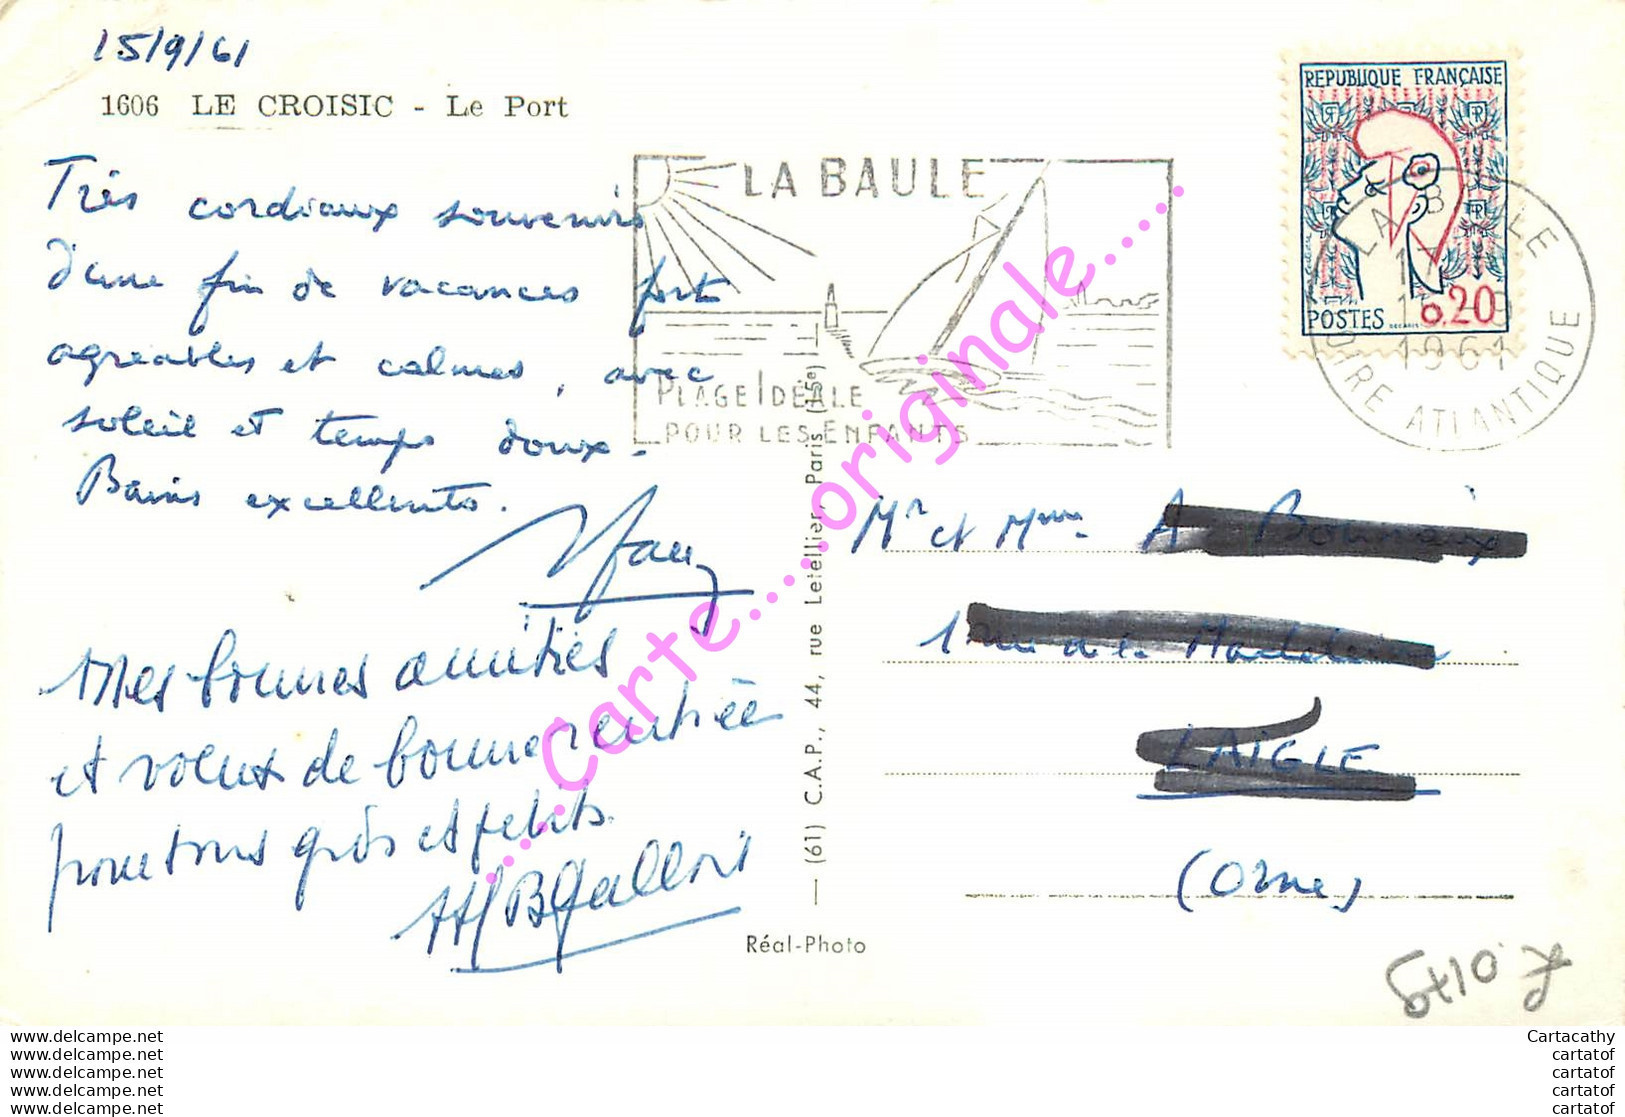 15/9/61
1606 LE CROISIC - Le Port
Très cordiaux souvenirs
d'une fin de vacances fort
agréables et calmes, avec
soleil et temps doux.
Bains excellents.
Mes bonnes amitiés
et voeux de bonne rentrée
pour tous gros et petits.
LA BAULE
PLAGE IDÉALE
POUR LES ENFANTS
REPUBLIQUE FRANÇAISE
POSTES 0,20
LA BAULE
1961
LOIRE ATLANTIQUE
....Carte....originale....
— (61) C.A.P., 44, rue Letellier, Paris (15e)
Réal-Photo
Mr et Mme A
1 rue de la Madeleine
LAIGLE
(Orne)
www.delcampe.net
www.delcampe.net
www.delcampe.net
www.delcampe.net
www.delcampe.net
Cartacathy
cartatof
cartatof
cartatof
cartatof